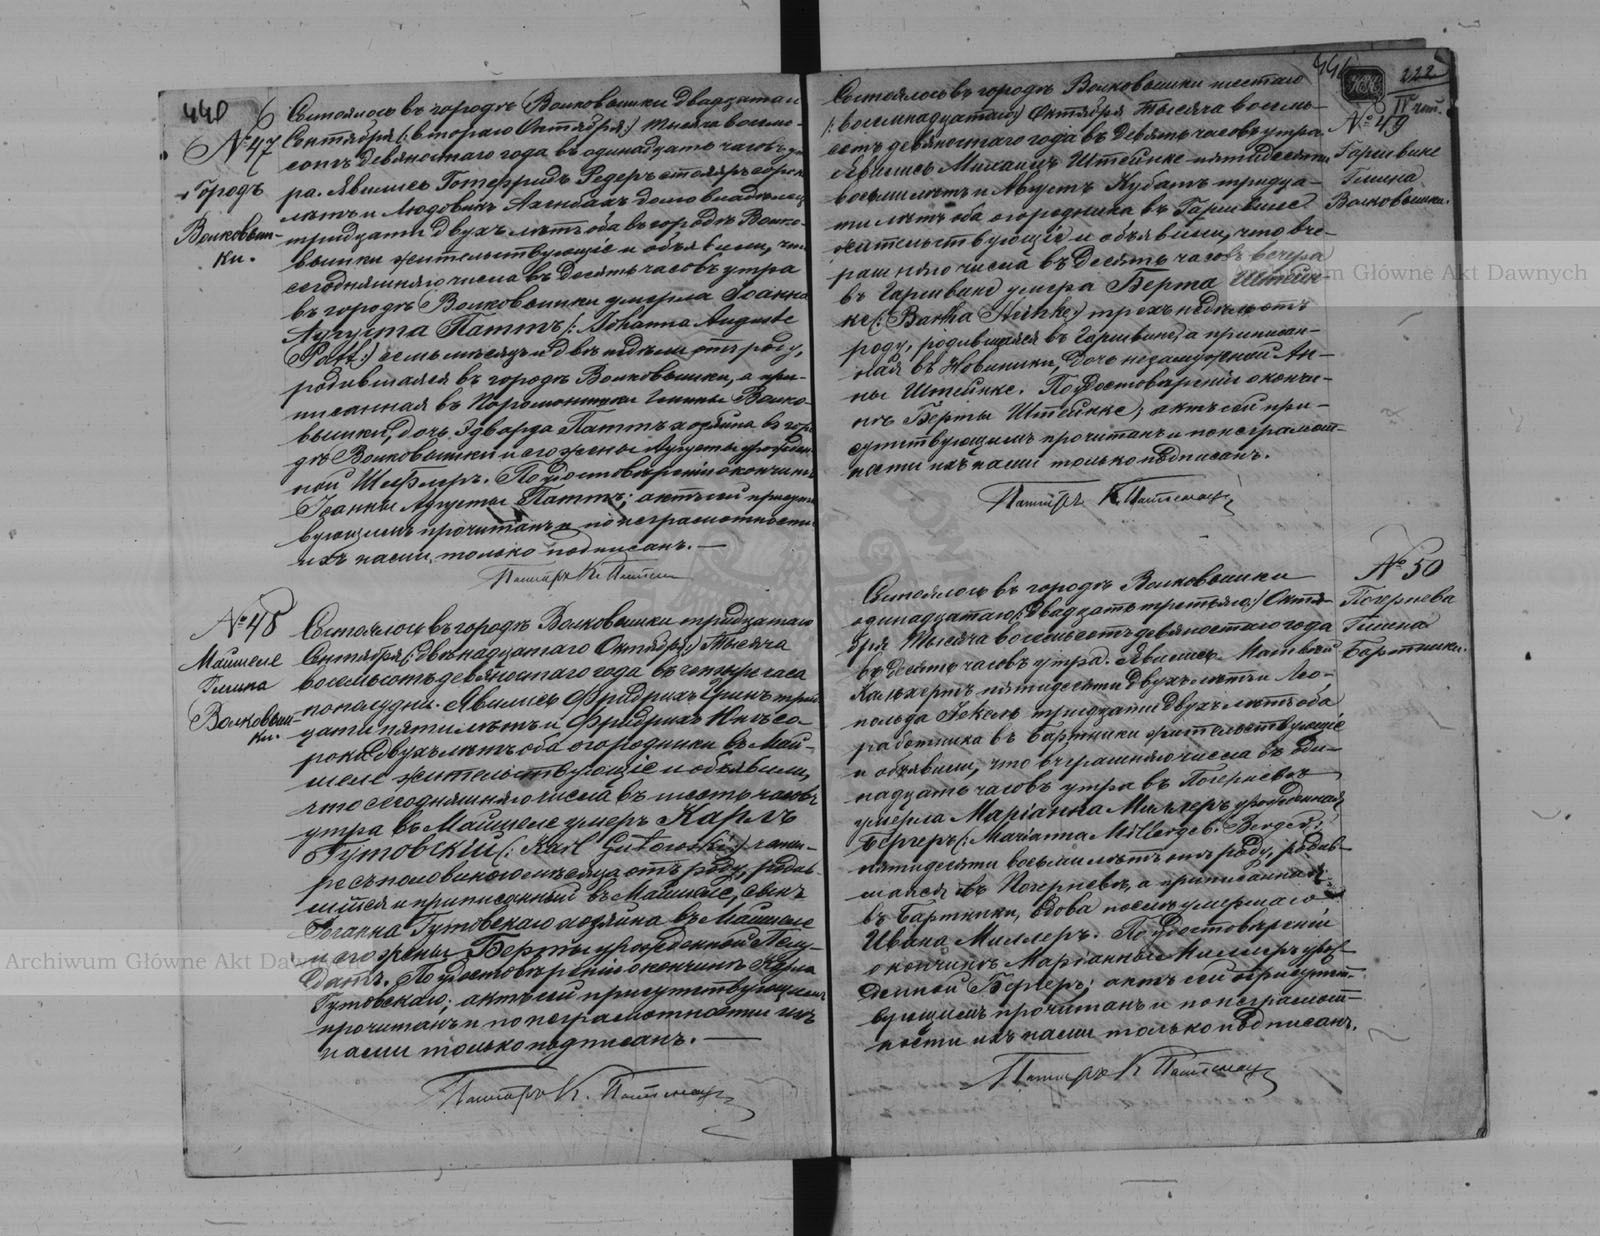 440
6
№ 47
Городъ
Волковыш-
ки.
Состоялось въ городѣ Волковышки двадцатаго
Сентября (: втораго Октября :) тысяча восемь-
сотъ девяностаго года въ одинадцать часовъ ут-
ра. Явились Готфридъ Редеръ столяръ сорока
лѣтъ и Людовикъ домовладѣлецъ
тридцати двухъ лѣтъ оба въ городѣ Волко-
вышки жительствующіе и объявили, что
сегодняшняго числа въ десять часовъ утра
въ городѣ Волковышки умерла Іоанна
Августа Паттъ (: Johanna Auguste
Patt :) семь мѣсяцъ и двѣ недѣли отъ роду,
родившаяся въ городѣ Волковышки, а при-
писанная въ Гмины Волко-
вышки, дочь Эдварда Паттъ хозяина въ горо-
дѣ Волковышки и его жены Августы урожден-
ной Шефлеръ. По удостовѣреніи о кончинѣ
Іоанны Августы Паттъ; актъ сей присутст-
вующимъ прочитанъ и по неграмотности
ихъ нами только подписанъ. —
Пасторъ К.
№ 48
Майшеле
Гмина
Волковыш-
ки.
Состоялось въ городѣ Волковышки тридцатаго
Сентября (: двѣнадцатаго Октября :) тысяча
восемьсотъ девяностаго года въ четыре часа
пополудни. Явились Фридрихъ Гринъ трид-
цати пяти лѣтъ и Фридрихъ со-
рока двухъ лѣтъ оба огородники въ Май-
шеле жительствующіе и объявили,
что сегодняшняго числа въ шесть часовъ
утра въ Майшеле умеръ Карлъ
Гутовскій (: Karl Gutowski :)
съ половиною мѣсяца отъ роду, родив-
шійся и приписанный въ Майшеле, сынъ
Іоганна Гутовскаго хозяина въ Майшеле
и его жены Берты урожденной
По удостовѣреніи о кончинѣ Карла
Гутовскаго; актъ сей присутствующимъ
прочитанъ и по неграмотности ихъ
нами только подписанъ. —
Пасторъ К.
441
222
IV чет.
№ 49
Гаришвине
Гмина
Волковышки.
Состоялось въ городѣ Волковышки шестаго
(: восемнадцатаго :) Октября тысяча восемь-
сотъ девяностаго года въ девять часовъ утра.
Явились Михаилъ Штейнке пятидесяти
восьми лѣтъ и Августъ Кубатъ тридца-
ти лѣтъ оба огородника въ
жительствующіе и объявили, что вче-
рашняго числа въ десять часовъ вечера
въ умерла Берта Штейн-
ке (: Bertha Steinke :) трехъ недѣль отъ
роду, родившаяся въ а приписан-
ная въ Новиники, дочь незамужней Ан-
ны Штейнке. По удостовѣреніи о кончи-
нѣ Берты Штейнке; актъ сей при-
сутствующимъ прочитанъ и по неграмот-
ности ихъ нами только подписанъ.
Пасторъ К.
№ 50
Погернева
Гмина
Бартники.
Состоялось въ городѣ Волковышки
одинадцатаго (: двадцать третьяго :) Октя-
бря тысяча восемьсотъ девяностаго года
въ десять часовъ утра. Явились Матвѣй
пятидесяти двухъ лѣтъ и Лео-
польдъ тридцати двухъ лѣтъ оба
работника въ Бартники жительствующіе
и объявили, что вчерашняго числа въ оди-
надцать часовъ утра въ Погерневѣ
умерла Маріанна Миллеръ урожденная
Бергеръ (: Marianna Miller geb. Berger :)
пятидесяти восьми лѣтъ отъ роду, родив-
шаяся въ Погерневѣ, а приписанная
въ Бартники, вдова послѣ умершаго
Ивана Миллеръ. По удостовѣреніи
о кончинѣ Маріанны Миллеръ урож-
денной Бергеръ; актъ сей присутст-
вующимъ прочитанъ и по неграмот-
ности ихъ нами только подписанъ.
Пасторъ К.
Archiwum Główne Akt Dawnych
Archiwum Główne Akt Dawnych